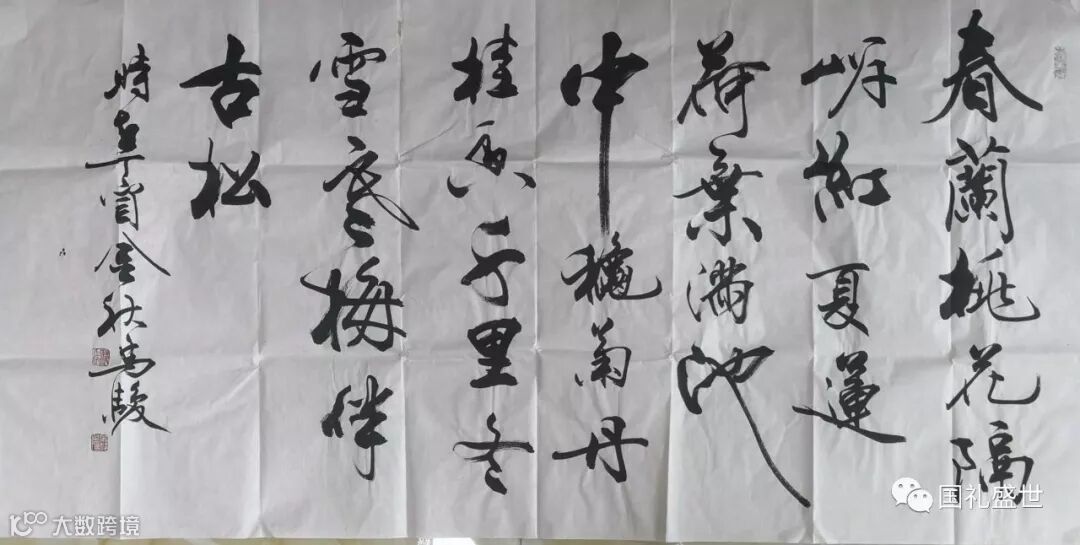 春蘭桃花隔
岸紅夏蓮
荷葉滿池
中穐菊丹
桂香千里冬
雪寒梅伴
古松
時寅金秋馬駿
国礼盛世
大数跨境